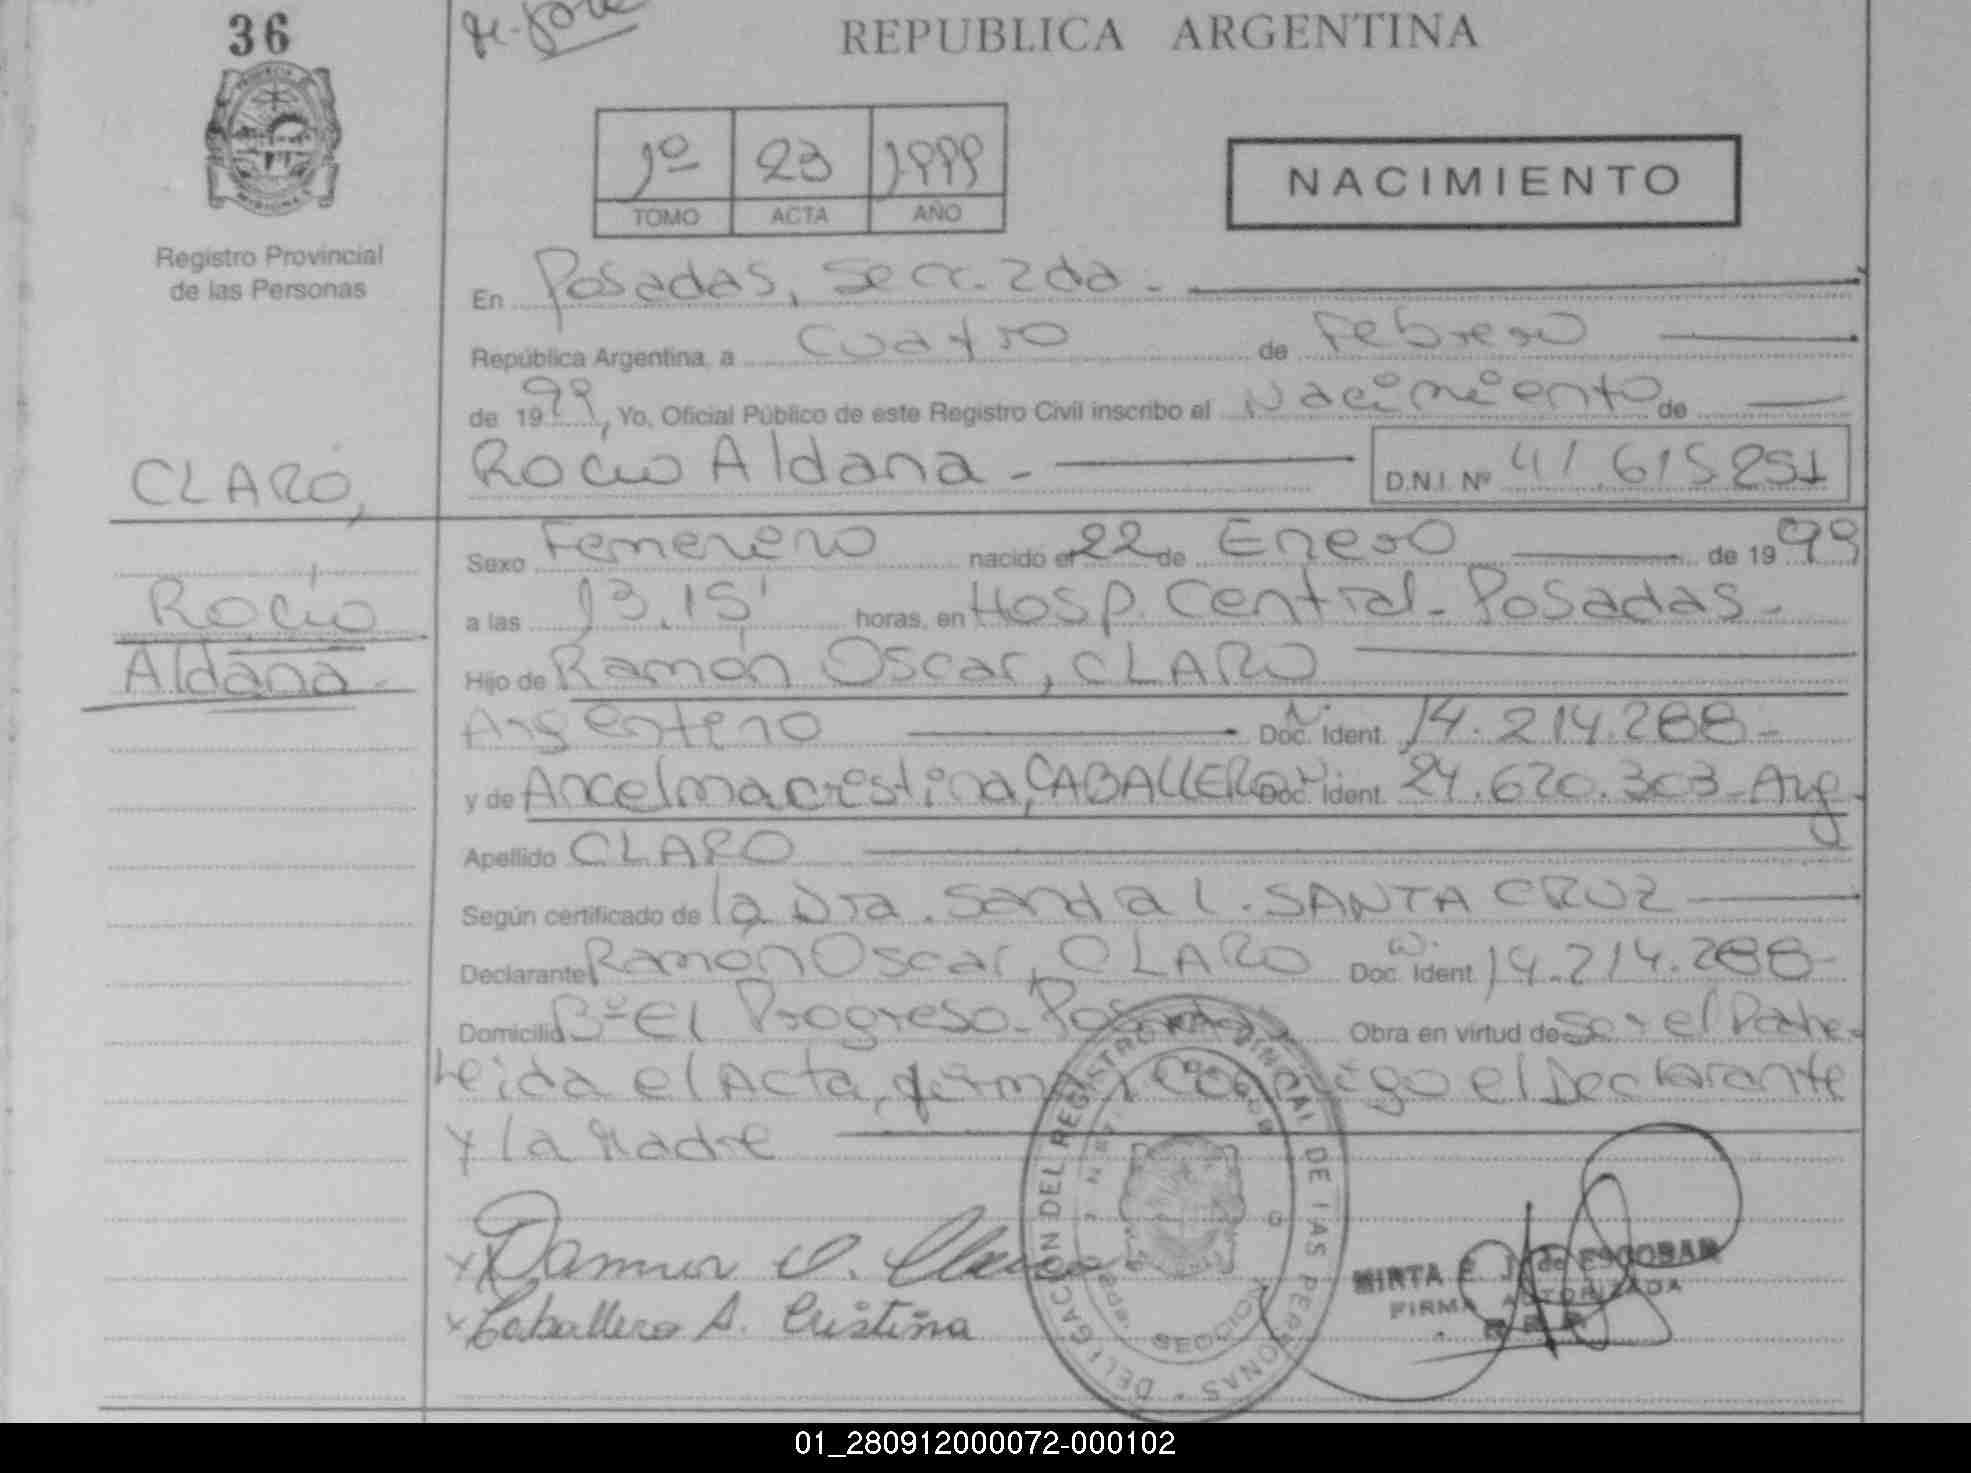 36
REPUBLICA ARGENTINA
1º 23 1999
TOMO ACTA AÑO
NACIMIENTO
Registro Provincial
de las Personas
En Posadas, Secc. 2da.
República Argentina, a Cuatro de Febrero
de 1999, Yo, Oficial Público de este Registro Civil inscribo el Nacimiento de
Rocio Aldana - D.N.I. Nº 41.615251
CLARO,
Rocio
Aldana -
Sexo Femenino nacido el 22 de Enero de 1999
a las 13.15' horas, en Hosp. Central - Posadas -
Hijo de Ramón Oscar, CLARO
Argentino Doc. Ident. 14.214.288 -
y de Ancelma Cristina, CABALLERO Doc. Ident. 24.620.303 - Arg.
Apellido CLARO
Según certificado de la Dra. Sandra L. SANTA CRUZ
Declarante Ramón Oscar, CLARO Doc. Ident. 14.214.288 -
Domicilio Bº El Progreso - Posadas Obra en virtud de Ser el Padre -
Leida el Acta, firman conmigo el Declarante
y la Madre
DELEGACION DEL REGISTRO PROVINCIAL DE LAS PERSONAS
SECCION
Caballero A. Cristina
MIRTA E. J. de ESCOBAR
FIRMA AUTORIZADA
01_280912000072-000102